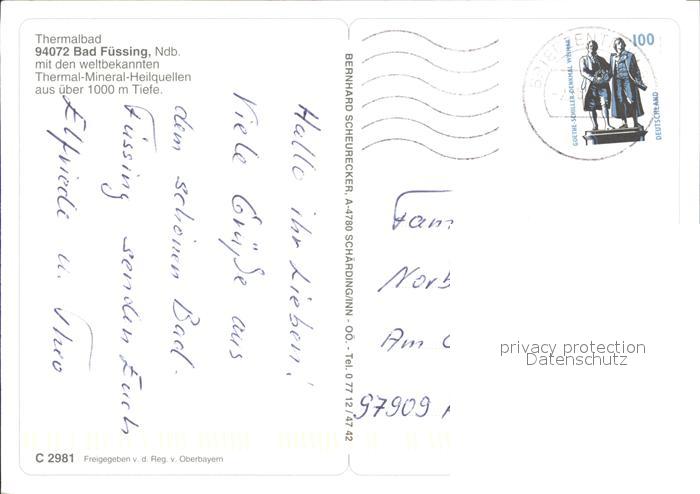 Thermalbad
94072 Bad Füssing, Ndb.
mit den weltbekannten
Thermal-Mineral-Heilquellen
aus über 1000 m Tiefe.
Hallo ihr Lieben!
Viele Grüße aus
dem schönen Bad.
Füssing senden Euch
Elfriede u. Theo
C 2981 Freigegeben v. d. Reg. v. Oberbayern
BERNHARD SCHEURECKER, A-4780 SCHÄRDING/INN - OÖ. - Tel. 0 77 12 / 47 42
BRIEFZENTR
GOETHE-SCHILLER-DENKMAL WEIMAR
100
DEUTSCHLAND
Fam
Norb
Am
97909
privacy protection
Datenschutz